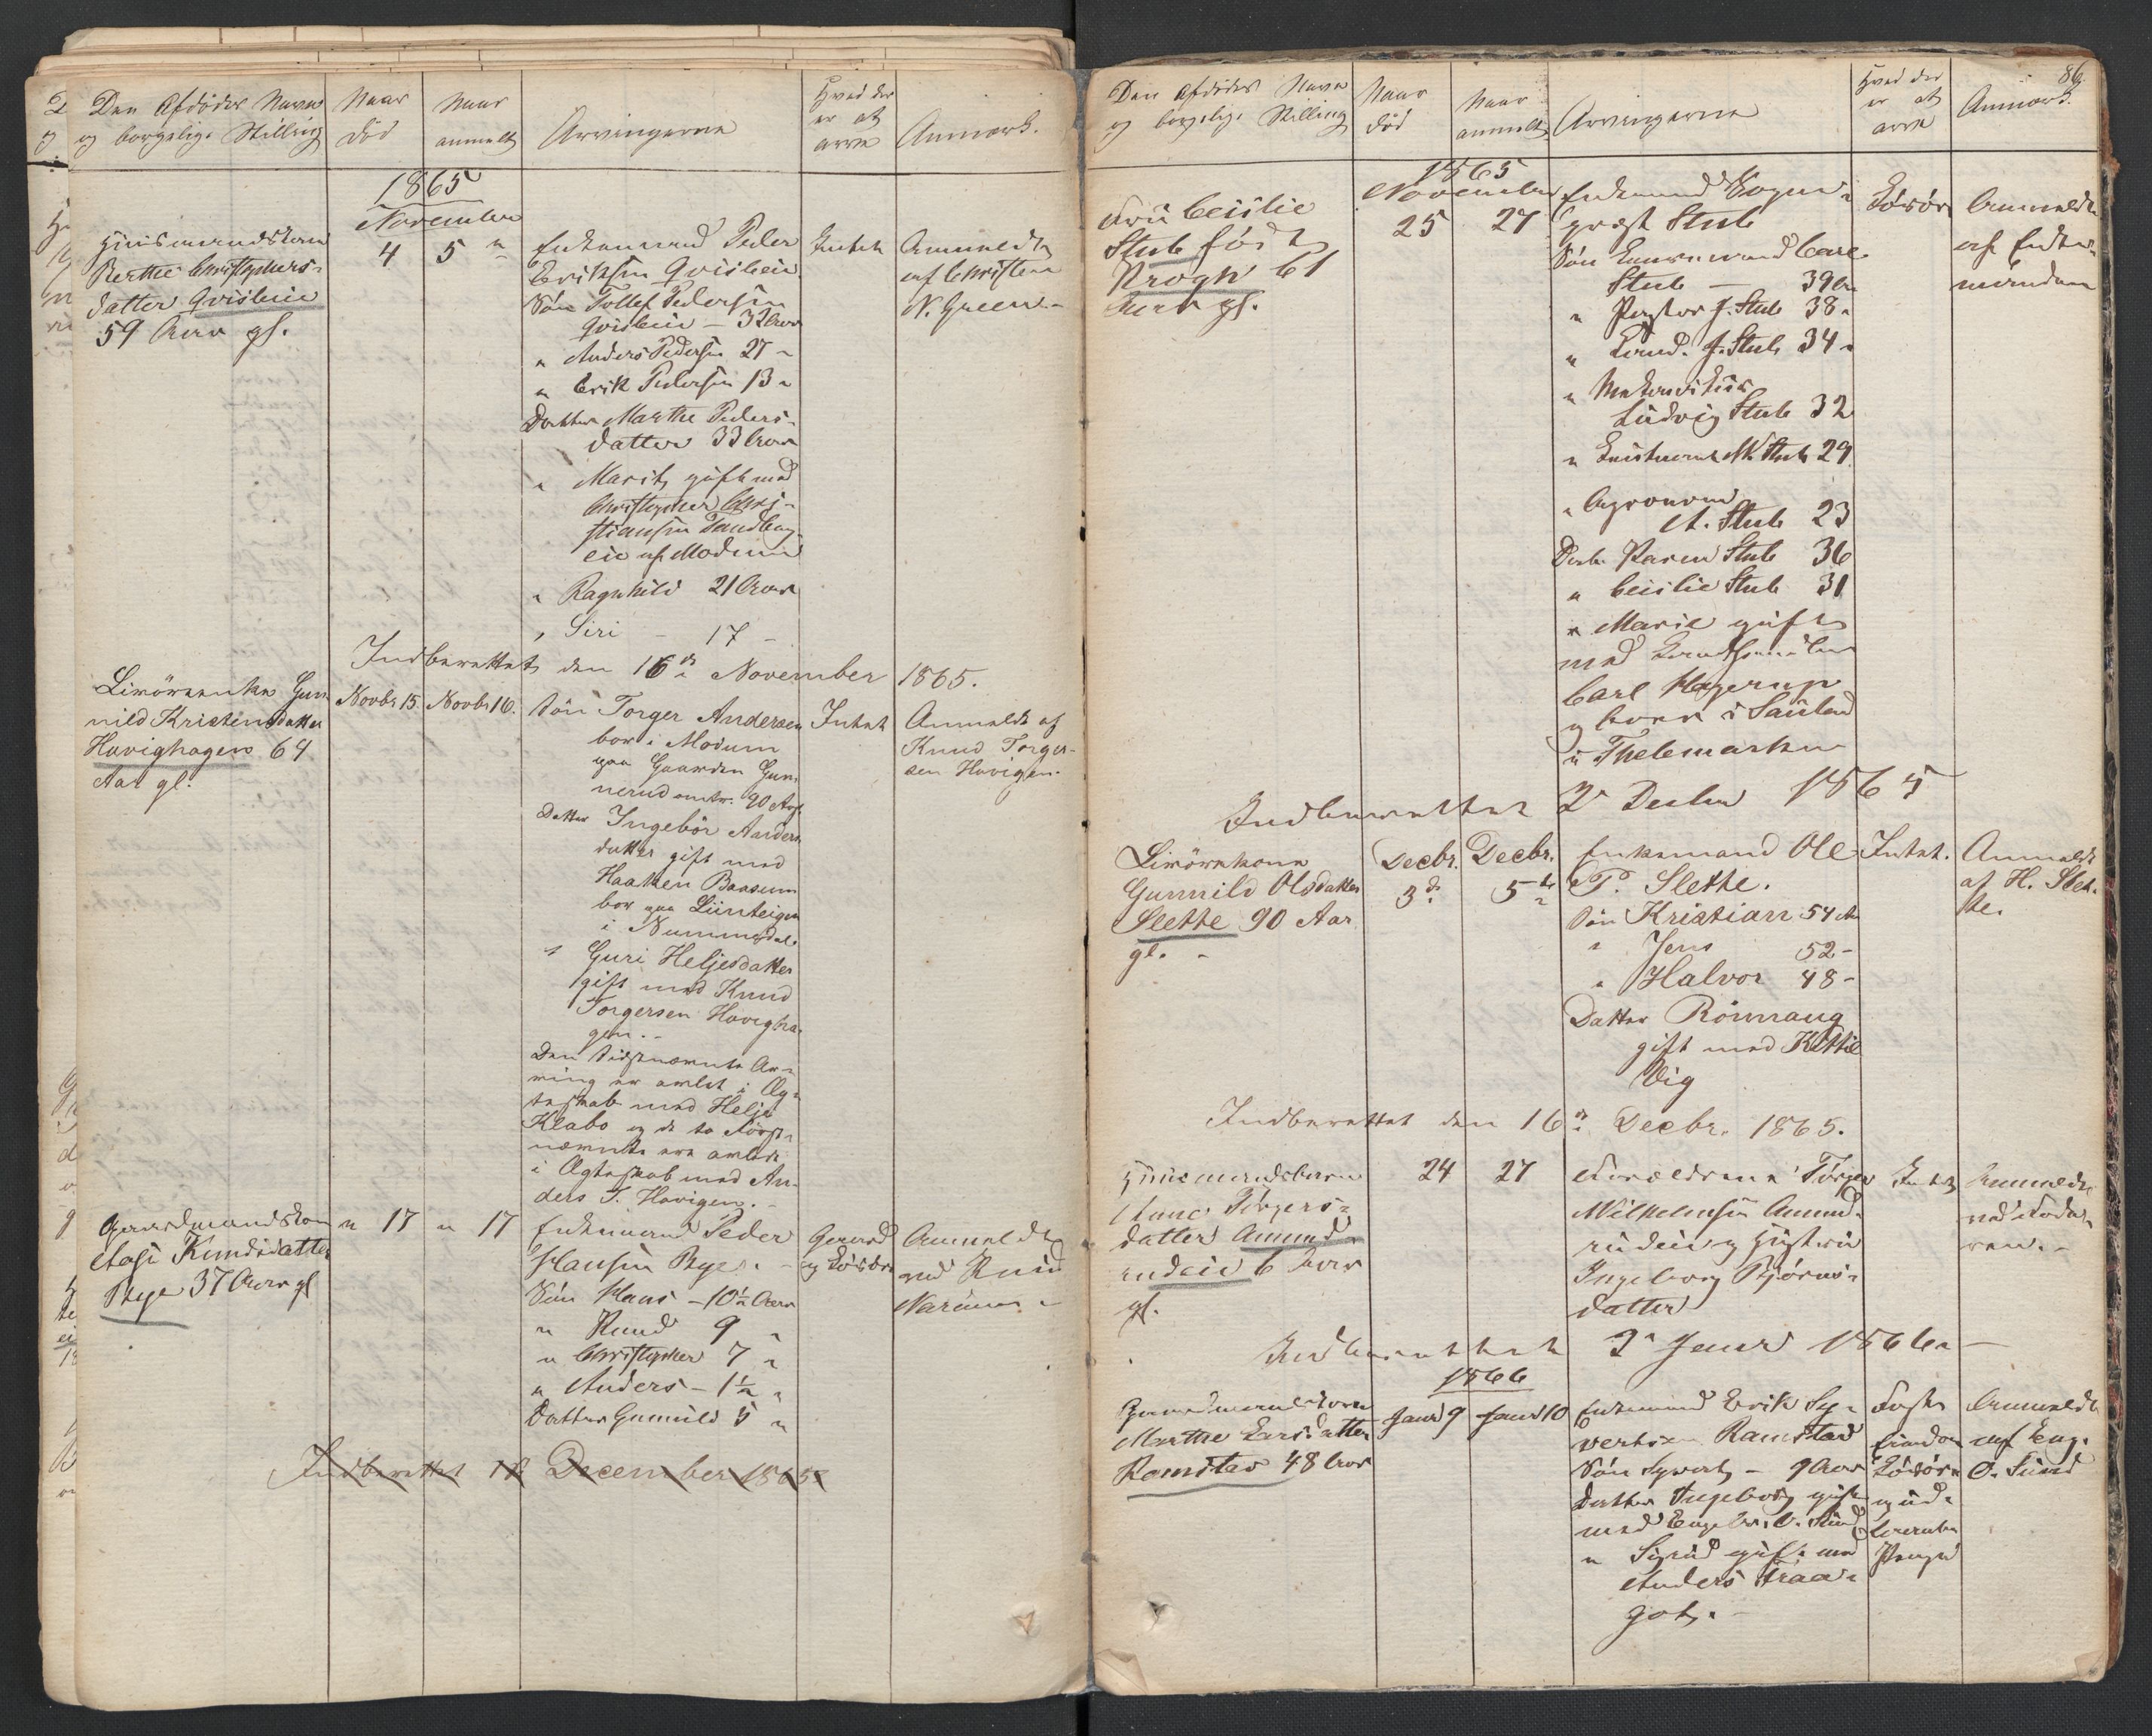 Den Afdødes Navn
og borgelige Stilling
Naar
død
Naar
anmeldt
Arvingerne
Hvad der
er at
arve
Anmærk.
1865
November
Huusmandskone
Berthe Christophers-
datter Qvisleie
59 Aar gl.
4
5
Enkemand Peder
Eriksen Qvisleie
Søn Tollef Pedersen
Qvisleie – 32 Aar
" Anders Pedersen 27 –
" Erik Pedersen 13 "
Datter Marthe Peders-
datter 33 Aar
" Marit gift med
Christopher Chri-
stiansen Tandberg
eie af Modum
" Ragnhild 21 Aar
" Siri – 17 –
Intet
Anmeldt
af Christen
N. Green. –
Indberettet den 16de November 1865.
Livøreenke Gun
nild Kristensdatter
Hovighagen 64
Aar gl.
Novbr 15
Novbr 16.
Søn Torger Andersen
bor i Modum
paa Gaarden Gun
nerud omtr. 90 Aar.
Datter Ingebør Anders
datter gift med
Haaken Baasum
bor paa Liinteigen
i Nummedal.
" Guri Heljesdatter
gift med Knud
Torgersen Hovigha-
gen. –
Den sidstnævnte Ar-
ving er avlet i Æg-
teskab med Helje
Klabo og de to først-
nævnte ere avlede
i Ægteskab med An-
ders T. Hovigen. –
Intet
Anmeldt af
Knud Torger-
sen Hovigen.
Gaardmandskone
Aase Knudsdatter
Bye 37 Aar gl
" 17
" 17
Enkemand Peder
Hansen Bye. –
Søn Hans – 10½ Aar
" Knud 9 "
" Christopher 7 "
" Anders – 1½ "
Datter Gunnild 5 "
Gaard
og Løsøre
Anmeldt
ved Knud
Indberettet 18 December 1865
86
Den Afdødes Navn
og borgelige Stilling
Naar
død
Naar
anmeldt
Arvingerne
Hvad der
er at
arve
Anmærk.
1865
November
Fru Ceisilie
Stub født
Krogh 61
Aar gl.
25
27
Enkemand Sogne-
præst Stub
Søn Carl
Stub – 39 Aar
" Pastor J. Stub 38 "
" Cand. J. Stub 34 "
"
Ludvig Stub 32
" M. Stub 29
" Agronom
A. Stub 23
Datr. Karen Stub 36
" Ceisilie Stub 31
" Marie gift
med
Carl Hagerup
og boer i Sauland
i Thelemarken
Løsøre
Anmeldt
af Enke-
manden
Indberettet 2 Decbr 1865
Livørekone
Gunnild Olsdatter
Slette 90 Aar
gl. –
Decbr.
3d.
Decbr.
5te
Enkemand Ole
P. Slette.
Søn Kristian 54 A
" Jens 52 –
" Halvor 48 –
Datter Rønnaug
gift med Kittil
Vig
Intet.
Anmeldt
af H. Slet-
te.
Indberettet den 16de Decbr. 1865.
Huusmandsbarn
Anne Torgers-
datter Amund-
rudeie 6 Aar
gl.
24
27
Forældrene Torger
Wilhelmsen Amund-
rudeie og Hustru
Ingeborg Bjørns-
datter
Intet
Anmeldt
ved Fade-
ren. –
Indberettet 2 Januar 1866 –
1866
Gaardmandskone
Marthe Larsdatter
Ramstad 48 Aar
Januar 9
Januar 10
Enkemand Erik Sy-
vertsen Ramstad
Søn Sywert – 9 Aar
Datter Ingeborg gift
med Engebr. O. Sund
" Sigrid gift med
Anders Fraa-
got. –
Fast
Eiendom
Løsøre
og ud-
Penge
Anmeldt
af Eng.
O. Sund